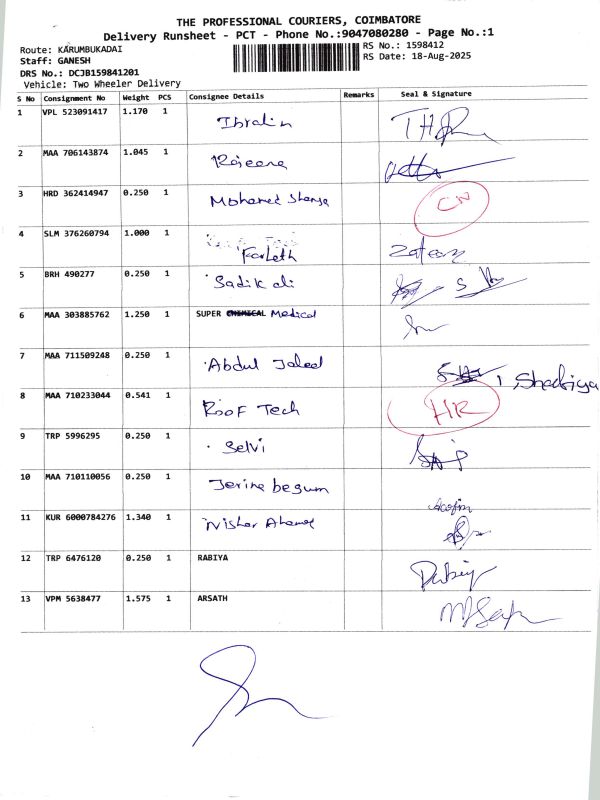 THE PROFESSIONAL COURIERS, COIMBATORE
Delivery Runsheet - PCT - Phone No.:9047080280 - Page No.:1
Route: KARUMBUKADAI
RS No.: 1598412
Staff: GANESH
RS Date: 18-Aug-2025
DRS No.: DCJB159841201
Vehicle: Two Wheeler Delivery
S No Consignment No Weight PCS Consignee Details Remarks Seal & Signature
1 VPL 523091417 1.170 1 Ibrahin
2 MAA 706143874 1.045 1
3 HRD 362414947 0.250 1 Mohamed CN
4 SLM 376260794 1.000 1
5 BRH 490277 0.250 1 Sadik ali
6 MAA 303885762 1.250 1 SUPER CHEMICAL Medical
7 MAA 711509248 0.250 1 Abdul Jaleel
8 MAA 710233044 0.541 1 Roof Tech HR
9 TRP 5996295 0.250 1 Selvi
10 MAA 710110056 0.250 1 Jerina begum
11 KUR 6000784276 1.340 1
12 TRP 6476120 0.250 1 RABIYA
13 VPM 5638477 1.575 1 ARSATH